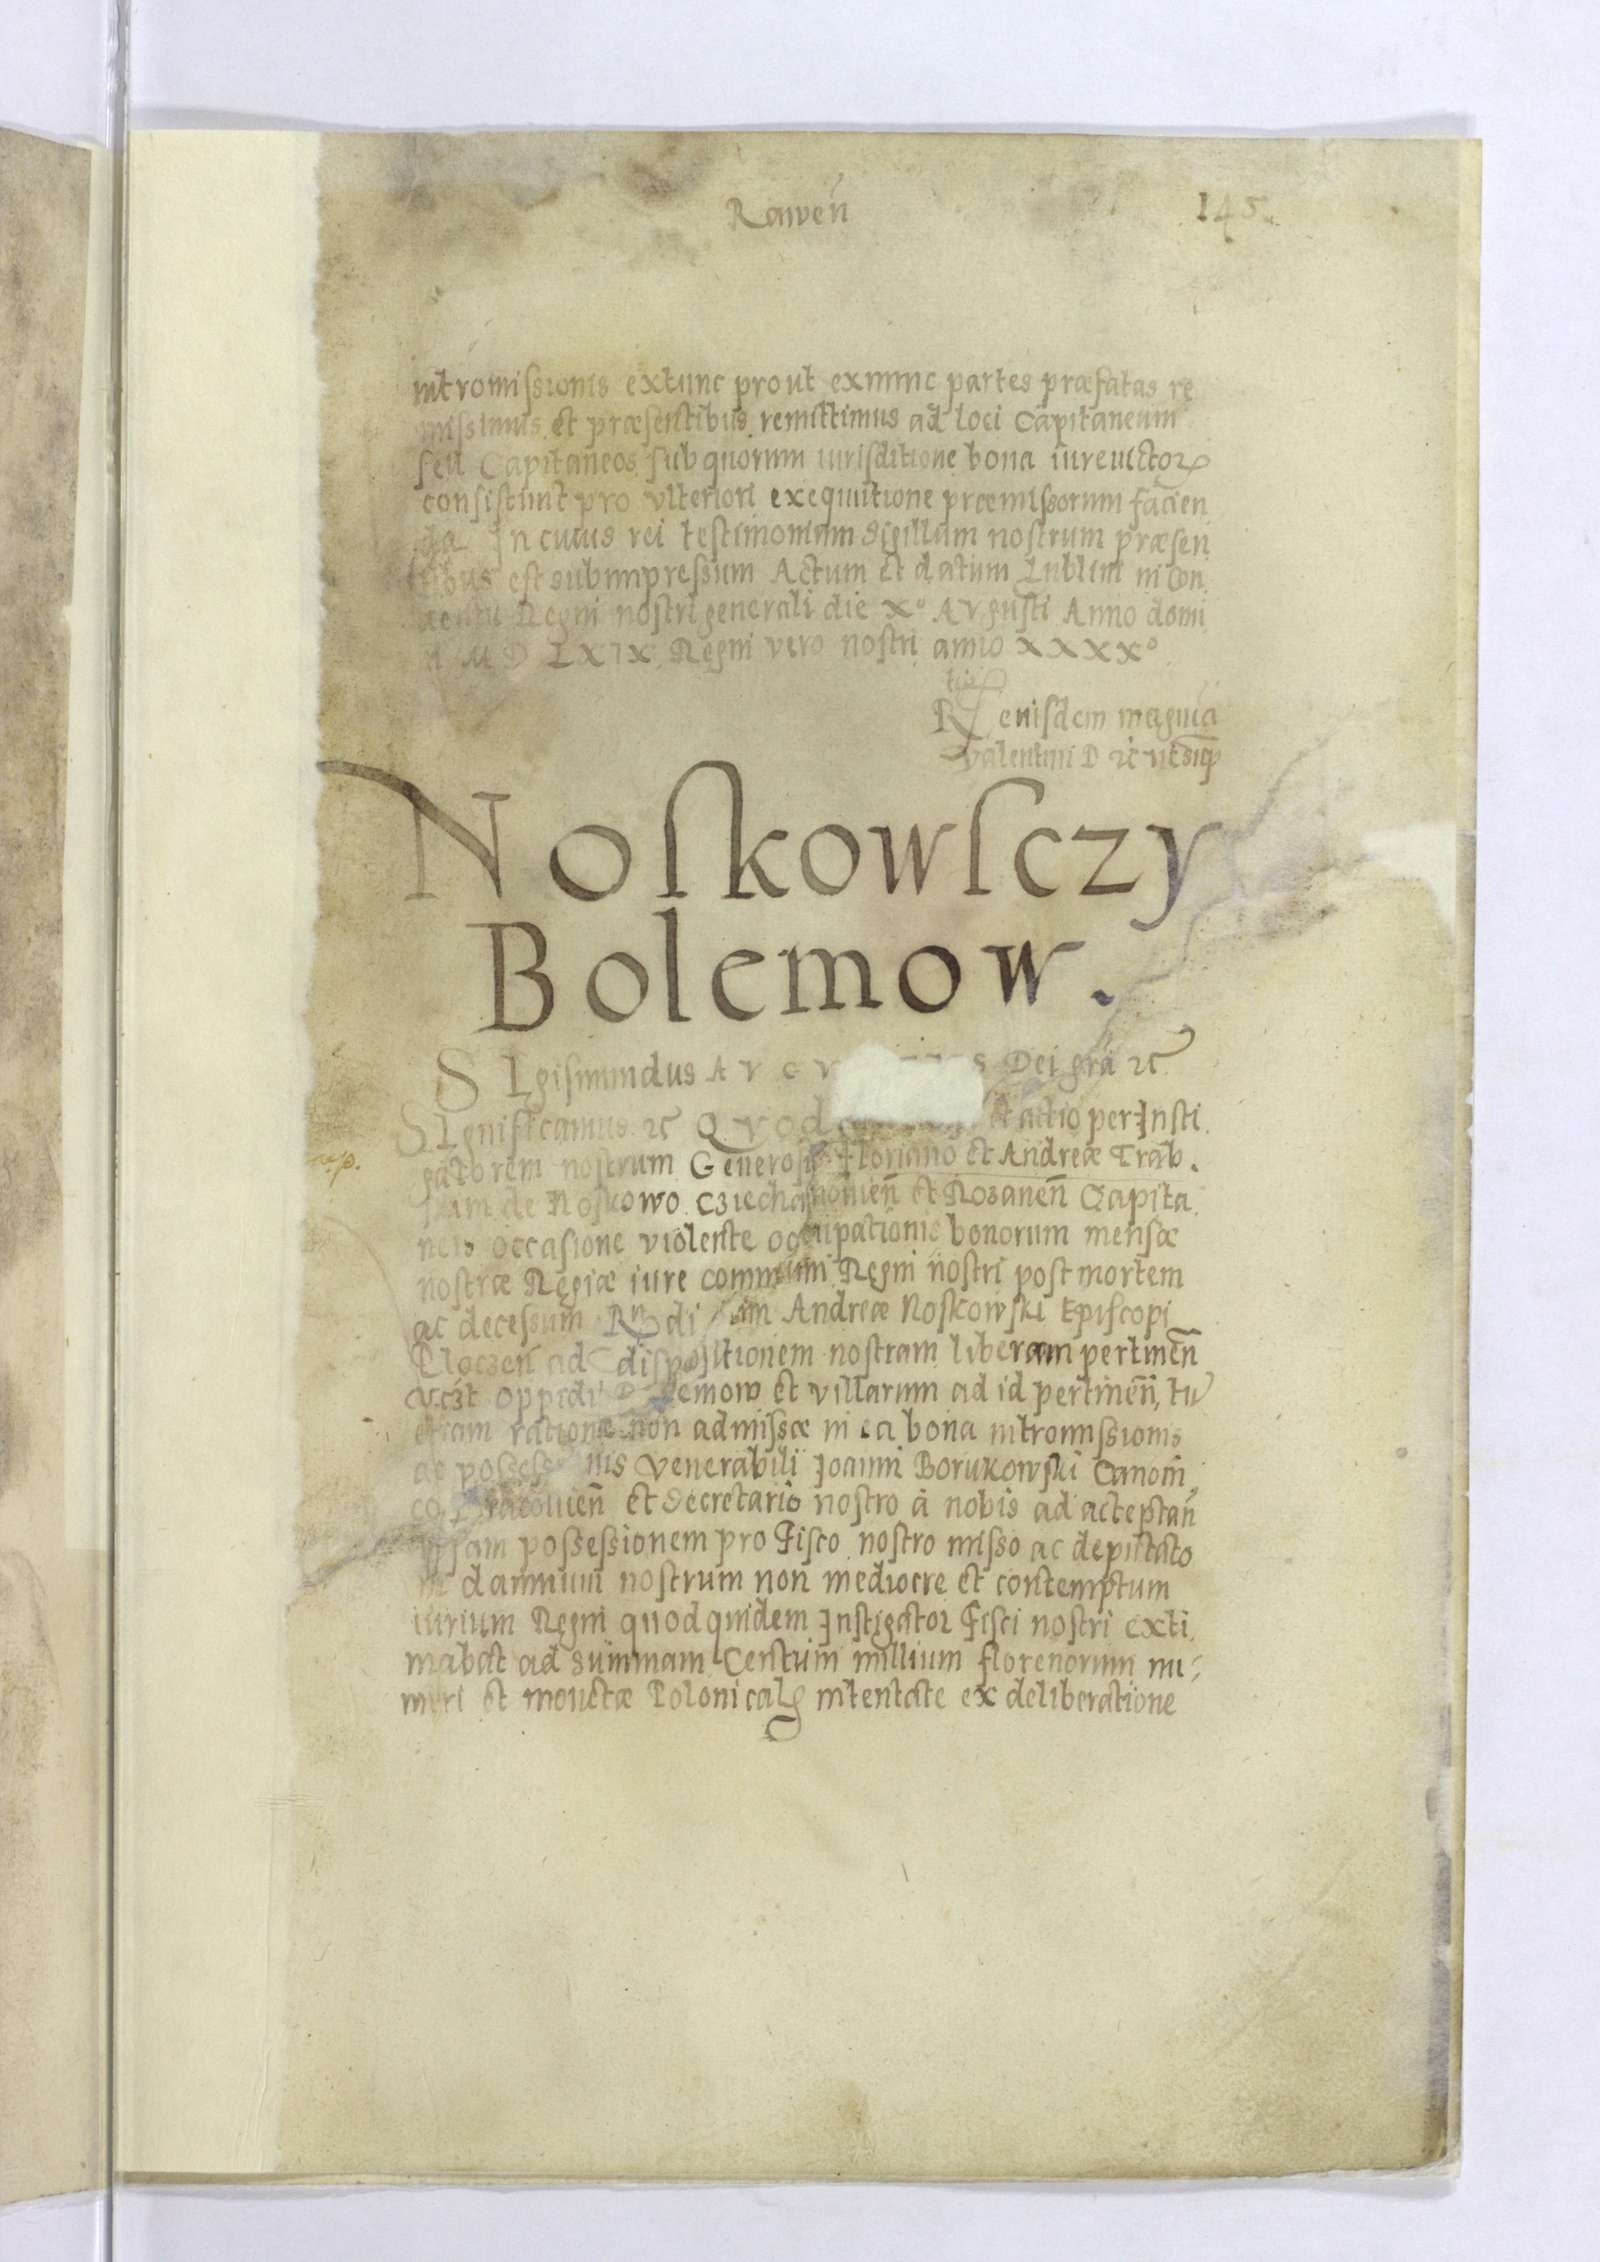 Rawen̄
145
intromissionis extunc prout exnunc partes præfatas re
missimus et præsentibus remittimus ad loci Capitaneum
seu Capitaneos sub quorum iurisditione bona iureuictoꝝ
consistunt pro vlteriori exequutione præmissorum facien
da In cuius rei testimonium Sigillum nostrum præsen
tibus est subimpressum Actum et datum Lublini in Con
uentu Regni nostri generali die Xº Avgusti Anno domi
ni M D LXIX Regni vero nostri anno XXXXº
eiusdem magnici
Valentini D
Noskowsczy
Bolemow.
SIgismundus AVGV s Dei gra ⁊c
SIgnificamus ⁊c Qvod actio per Insti
gatorem nostrum Generosis Floriano et Andreæ Trab.
skim de Noskowo Cziechanouien̄ et Rozanen̄ Capita
neis occasione violente occupationis bonorum mensæ
nostræ Regiæ iure communi Regni nostri post mortem
ac decessum Rn̄di im Andreæ Noskowski Episcopi
Plocʒen̄ ad dispositionem nostram liberam pertinen̄
vcʒt oppidi emow et villarum ad id pertinen̄, tu
etiam ratione non admissæ in ea bona intromissionis
ac possess nis Venerabili Joanni Borukowski Canoni
co Cracouien̄ et Secretario nostro à nobis ad acceptan̄
ipsam possessionem pro Fisco nostro misso ac deputato
in damnum nostrum non mediocre et contemptum
iurium Regni quod quidem Instigator Fisci nostri exti
mabat ad summam Centum millium florenorum nu
meri et monetæ Polonicalꝭ intentate ex deliberatione